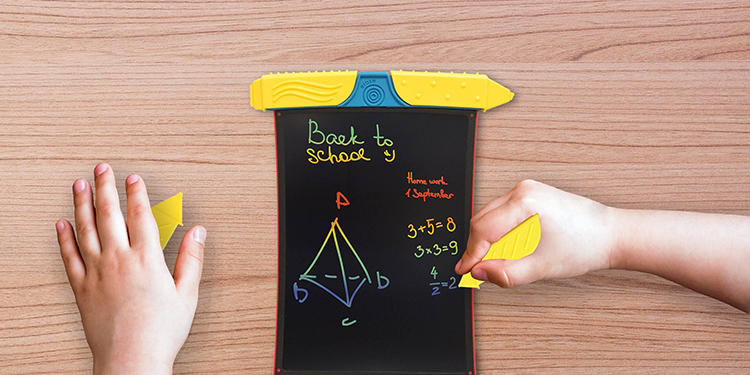 Back to
school
Home work
1 September
A
3+5=8
3×3=9
4/2=2
B
D
C